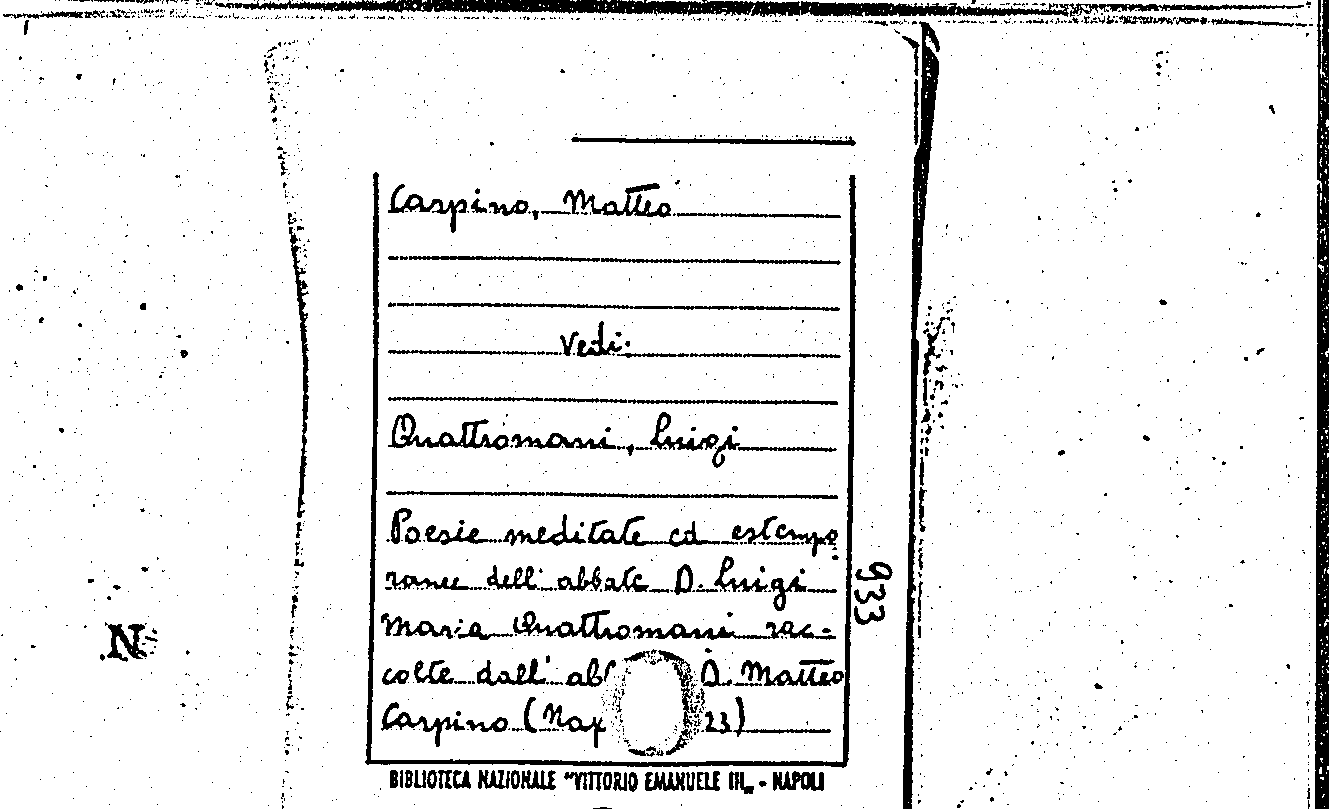 Carpino, Matteo
Vedi:
Quattromani, Luigi
Poesie meditate ed estempo
ranee dell'abbate D. Luigi
Maria Quattromani rac-
colte dall' D. Matteo
Carpino (Nap 23)
933
N
BIBLIOTECA NAZIONALE "VITTORIO EMANUELE III„ - NAPOLI